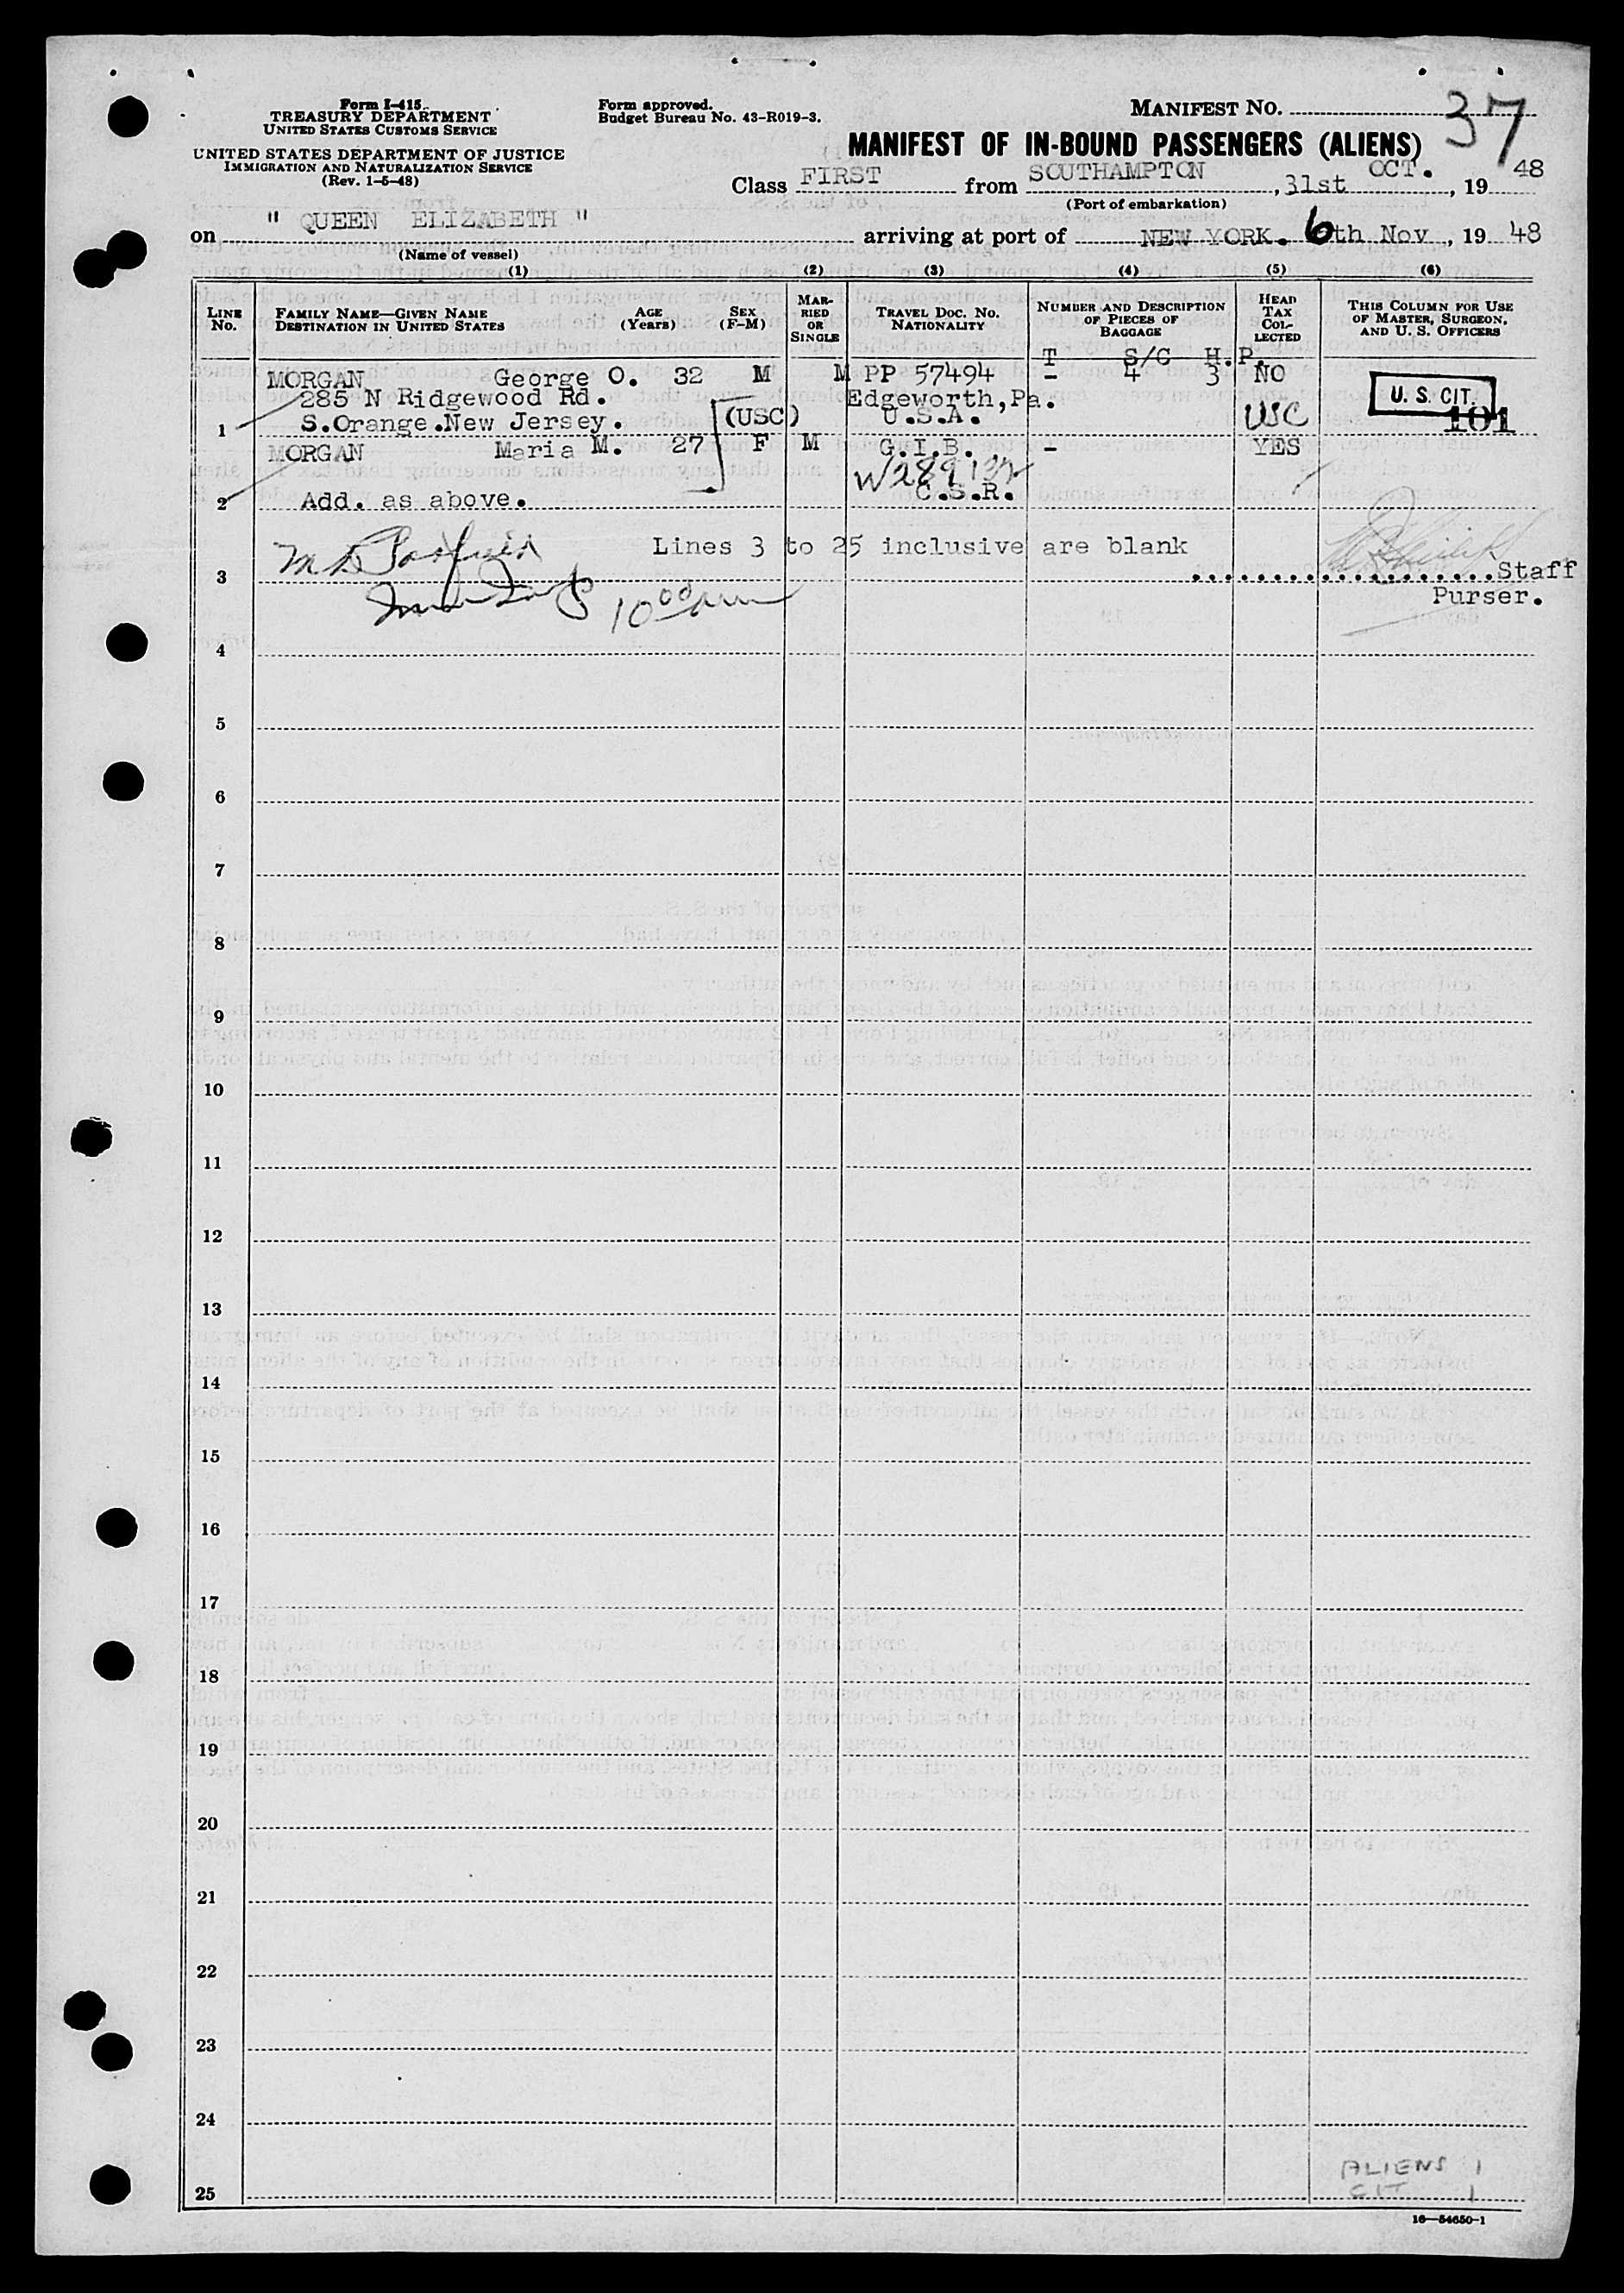 Form I-415
TREASURY DEPARTMENT
UNITED STATES CUSTOMS SERVICE
UNITED STATES DEPARTMENT OF JUSTICE
IMMIGRATION AND NATURALIZATION SERVICE
(Rev. 1-5-48)
Form approved.
Budget Bureau No. 43-R019-3.
MANIFEST NO. 37
MANIFEST OF IN-BOUND PASSENGERS (ALIENS)
Class FIRST from SOUTHAMPTON, 31st OCT., 19 48
(Port of embarkation)
on " QUEEN ELIZABETH " arriving at port of NEW YORK. 6th Nov, 19 48
(Name of vessel)
(1) (2) (3) (4) (5) (6)
LINE No.
FAMILY NAME—GIVEN NAME
DESTINATION IN UNITED STATES
AGE (Years)
SEX (F-M)
MARRIED OR SINGLE
TRAVEL DOC. NO.
NATIONALITY
NUMBER AND DESCRIPTION OF PIECES OF BAGGAGE
HEAD TAX COLLECTED
THIS COLUMN FOR USE OF MASTER, SURGEON, AND U. S. OFFICERS
T S/C H.P.
MORGAN George O. 32 M M PP 57494 - 4 3 NO
285 N Ridgewood Rd. Edgeworth, Pa. U. S. CIT.
1 S.Orange.New Jersey. (USC) U.S.A. USC 101
MORGAN Maria M. 27 F M G.I.B. - YES
2 Add. as above. C.S.R.
Lines 3 to 25 inclusive are blank
3 Staff
Purser.
10 00 am
4
5
6
7
8
9
10
11
12
13
14
15
16
17
18
19
20
21
22
23
24
ALIENS 1
25 CIT 1
16—54650-1